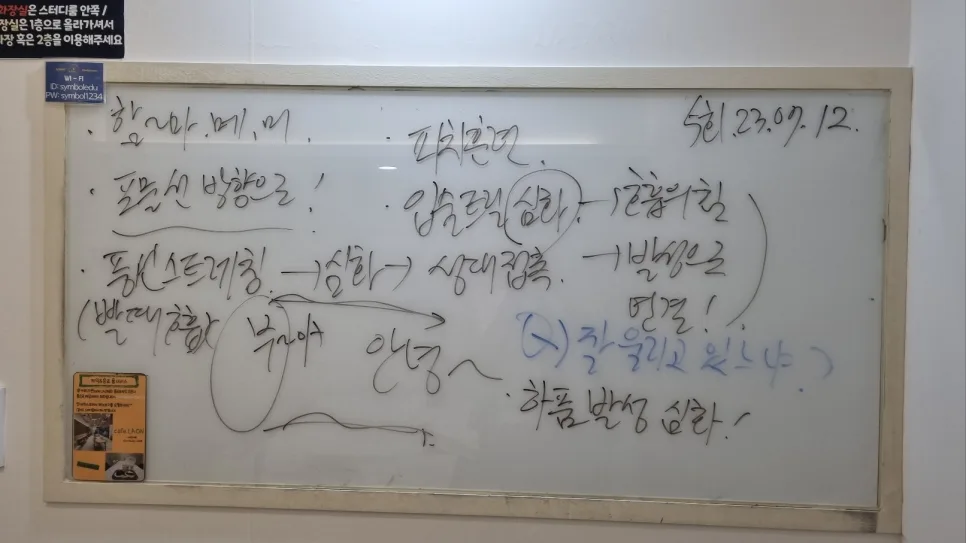 화장실은 스터디룸 안쪽 /
장실은 1층으로 올라가셔서
화장 혹은 2층을 이용해주세요
WI-FI
ID: symboledu
PW: symbol1234
· 함~마.메.미.
· 포물선 방향으로!
· 풍선스트레칭 → 심화 → 상대접촉.
(빨대호흡)
부~아
안녕~
5회.23.07.12.
· 피치훈련.
· 입술트릴 심화. → 호흡위칠
→ 발성으로
연결!
Q) 잘 울리고 있느냐?
· 하품발성 심화!